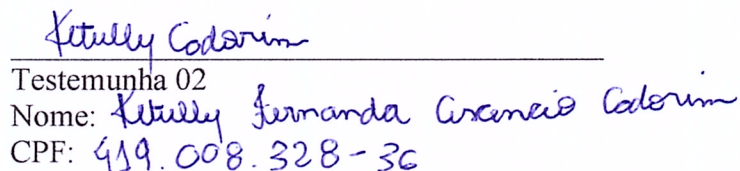 Ketully Codorim
Testemunha 02
Nome: Ketully Fernanda Cascencio Codorim
CPF: 419.008.328-36